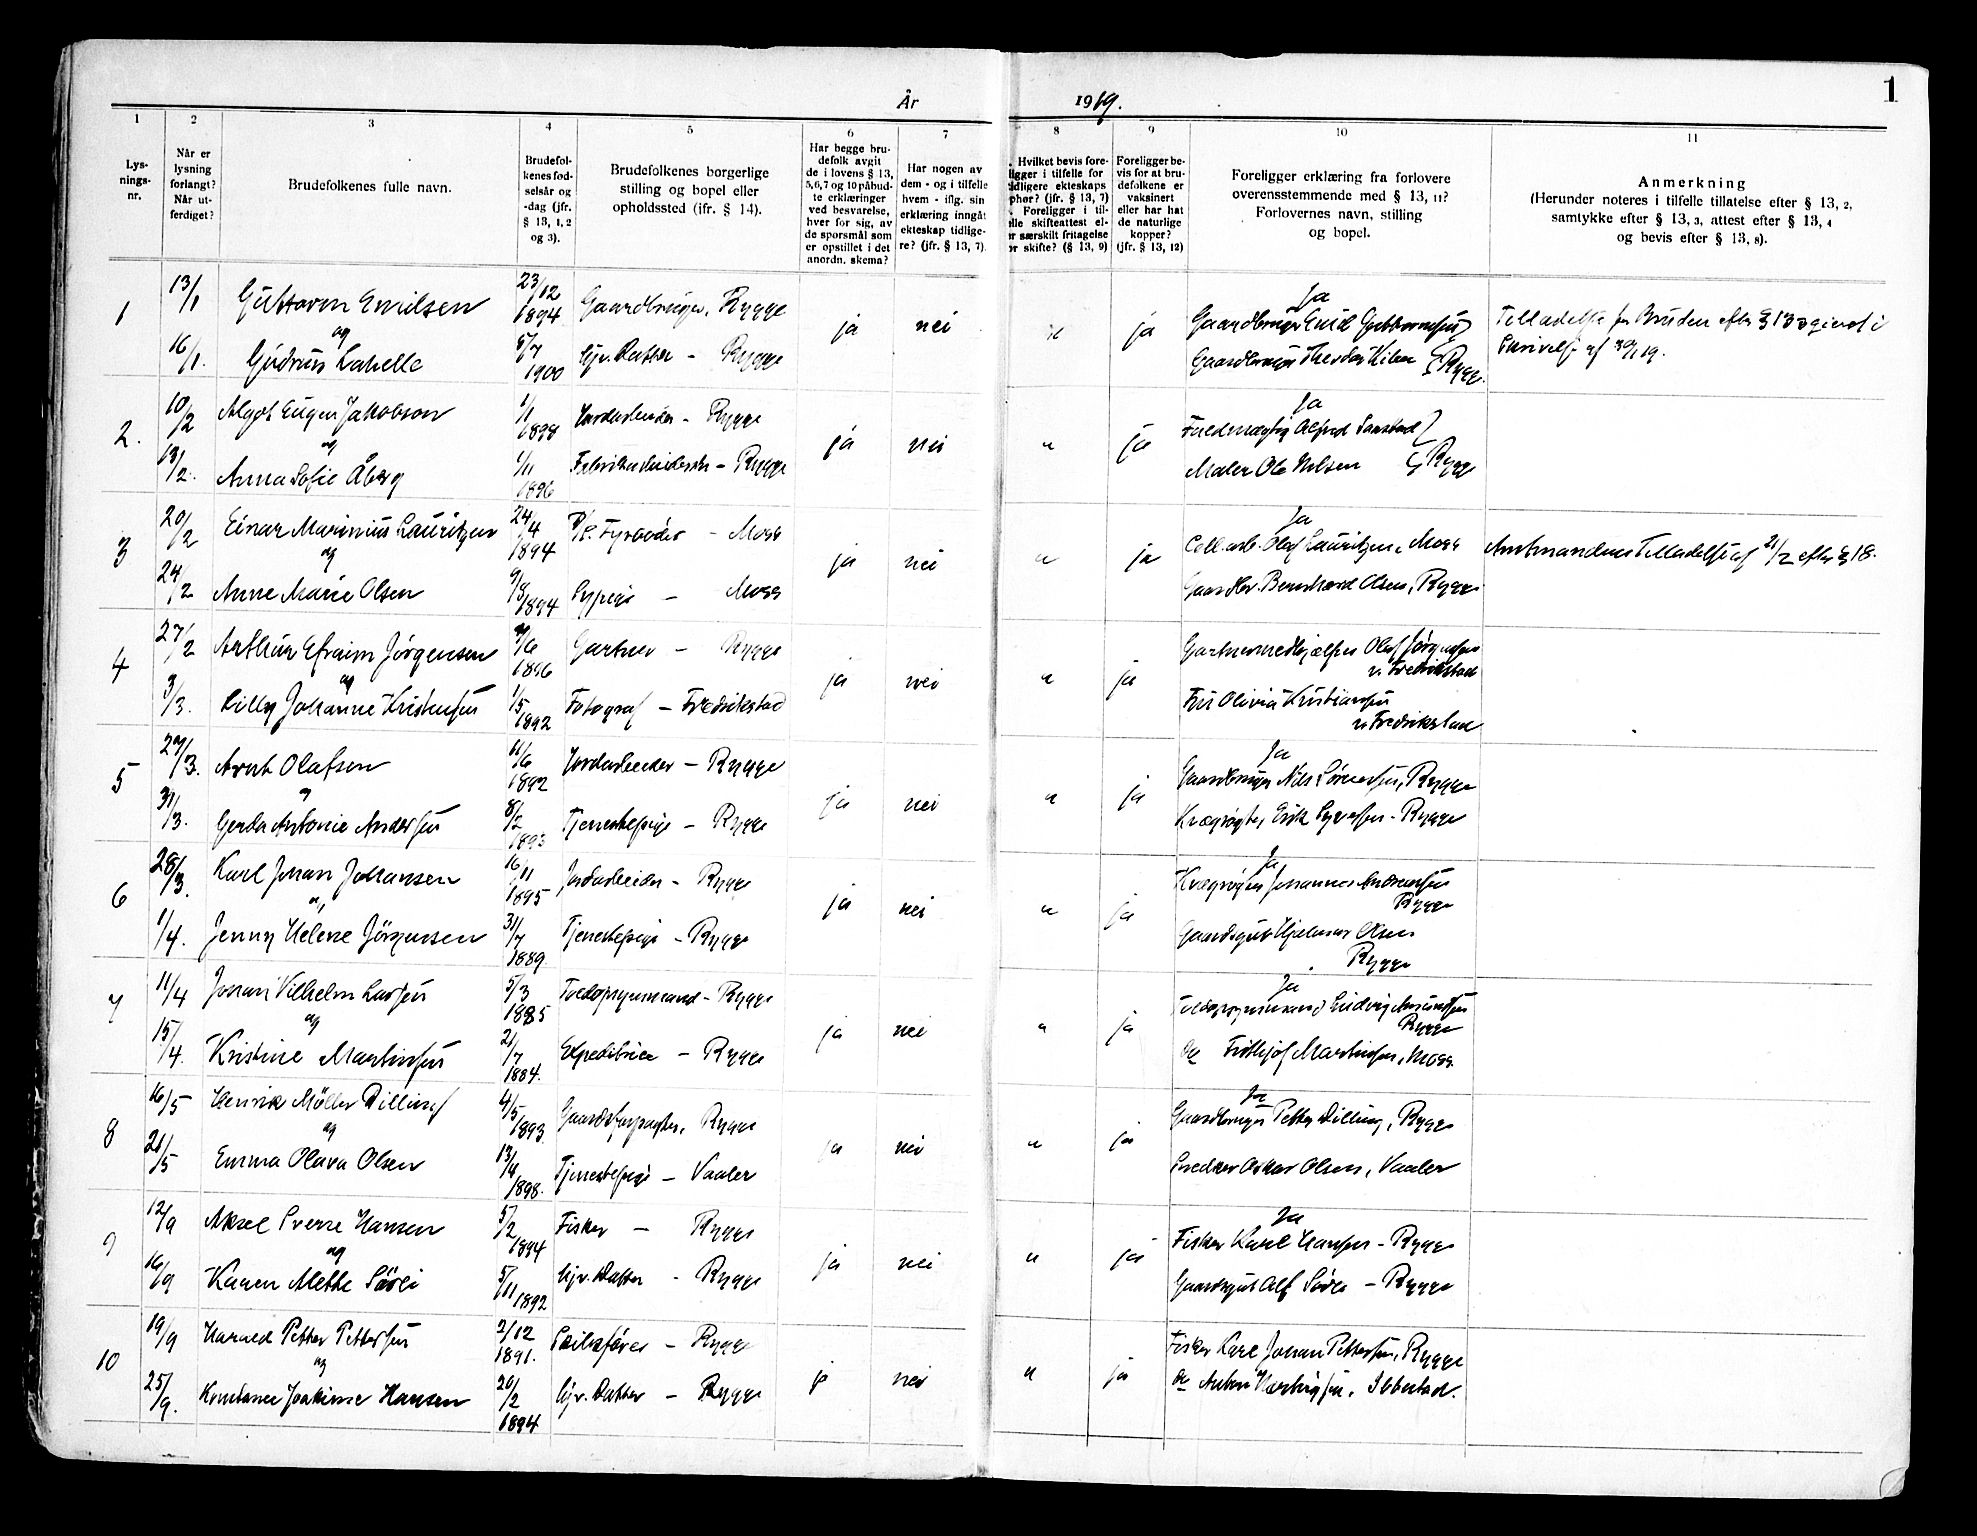 1
År 1919.
1 2 3 4 5 6 7 8 9 10 11
Lys-
nings-
nr.
Når er
lysning
forlangt?
Når ut-
ferdiget?
Brudefolkenes fulle navn.
Brudefol-
kenes fød-
selsår og
-dag (jfr.
§ 13, 1, 2
og 3).
Brudefolkenes borgerlige
stilling og bopel eller
opholdssted (ifr. § 14).
Har begge bru-
defolk avgit
de i lovens § 13,
5,6,7 og 10 påbud-
te erklæringer
ved besvarelse,
hver for sig, av
de spørsmål som
er opstillet i det
anordn. skema?
Har nogen av
dem - og i tilfelle
hvem - iflg. sin
erklæring inngåt
ekteskap tidlige-
re? (jfr. § 13, 7).
Hvilket bevis fore-
ligger i tilfelle for
tidligere ekteskaps
ophør? (jfr. § 13, 7)
Foreligger i til-
felle skifteattest el-
ler særskilt fritagelse
for skifte? (§ 13, 9)
Foreligger be-
vis for at bru-
defolkene er
vaksinert
eller har hat
de naturlige
kopper?
(jfr. § 13, 12)
Foreligger erklæring fra forlovere
overensstemmende med § 13, 11?
Forlovernes navn, stilling
og bopel.
Anmerkning
(Herunder noteres i tilfelle tillatelse efter § 13, 2,
samtykke efter § 13, 3, attest efter § 13, 4
og bevis efter § 13, 8).
1 13/1 Guttorm Emilsen 23/12 1894 Gaardbruger, Rygge ja nei " ja Ja
og Gaardbruger Emil Guttormsen
16/1. Gudrun Labelle 5/7 1900 Gjv. Datter - Rygge Gaardbruger Theodor Kiben Rygge.
Tilladelse for Bruden efter § 13 2 givet i
Skrivelse af 30/1 19.
2. 10/2 Algot Eugen Jakobson 1/1 1898 Jordarbeider - Rygge ja nei " ja Ja
og Fuldmægtig Alfred Sanstad
13/2. Anna Sofie Åberg 1/11 1896 Fabrikarbeiderske - Rygge Maler Ole Nilsen Rygge
3 20/2 Einar Marinius Lauritzen 24/4 1894 Fyrbøder - Moss ja nei " ja Ja
og Cell. arb. Olaf Lauritzen, Moss
24/2 Anne Marie Olsen 9/8 1894 Sypige - Moss Gaardbr. Bernhard Olsen, Rygge
Amtmandens Tilladelse af 21/2 efter § 18.
4 27/2 Arthur Efraim Jørgensen /6 1896 Gartner - Rygge ja nei " ja Gartnermedhjælper Olaf Jørgensen
og v. Fredrikstad
3/3. Lilly Johanne Kristensen 1/5 1892 Fotograf - Fredrikstad Fru Olivia Kristiansen
v. Fredrikstad
5 29/3. Arnt Olafsen 11/6 1892 Jordarbeider - Rygge ja nei " ja Ja
og Gaardbruger Nils Sørensen, Rygge
31/3. Gerda Antonie Andersen 8/2 1893 Tjenestepige - Rygge Kvægrøgter Erik Syversen - Rygge
6 28/3. Karl Johan Johansen 16/11 1895 Jordarbeider - Rygge ja nei " ja Ja
og Kvægrøgter Johannes Andersen
Rygge
1/4. Jenny Helene Jörgensen 31/7 1889. Tjenestepige - Rygge Gaardsgut Hjalmar Olsen
Rygge
7 11/4 Johan Vilhelm Larsen 5/3 1885 Toldopsynsmand - Rygge ja nei " ja Ja
og Toldopsynsmand Ludvig Amundsen
Rygge
15/4. Kristine Martinsen 21/7 1884. Expeditrice - Rygge do Fridtjof Martinsen, Moss.
8 16/5 Henrik Møller Dilling 4/5 1893 Gaardsforpagter, Rygge ja nei " ja Ja
og Gaardbruger Petter Dilling, Rygge
21/5 Emma Olava Olsen 13/4 1898. Tjenestepige - Vaaler Snedker Oskar Olsen, Vaaler
9 12/9 Aksel Sverre Hansen 5/2 1894 Fisker - Rygge ja nei " ja Ja
og Fisker Karl Hansen - Rygge
16/9 Karen Alethe Såréi 5/11 1892 Gjv. Datter - Rygge Gaardsgut Alf - Rygge
10 19/9 Harald Petter Pettersen 2/12 1891. Skibsfører - Rygge ja nei " ja Fisker Karl Johan Pettersen, Rygge
og do Anton Hartvigsen, Ibbestad.
25/9. Konstance Joakime Hansen 20/2 1894 Gjv. Datter - Rygge